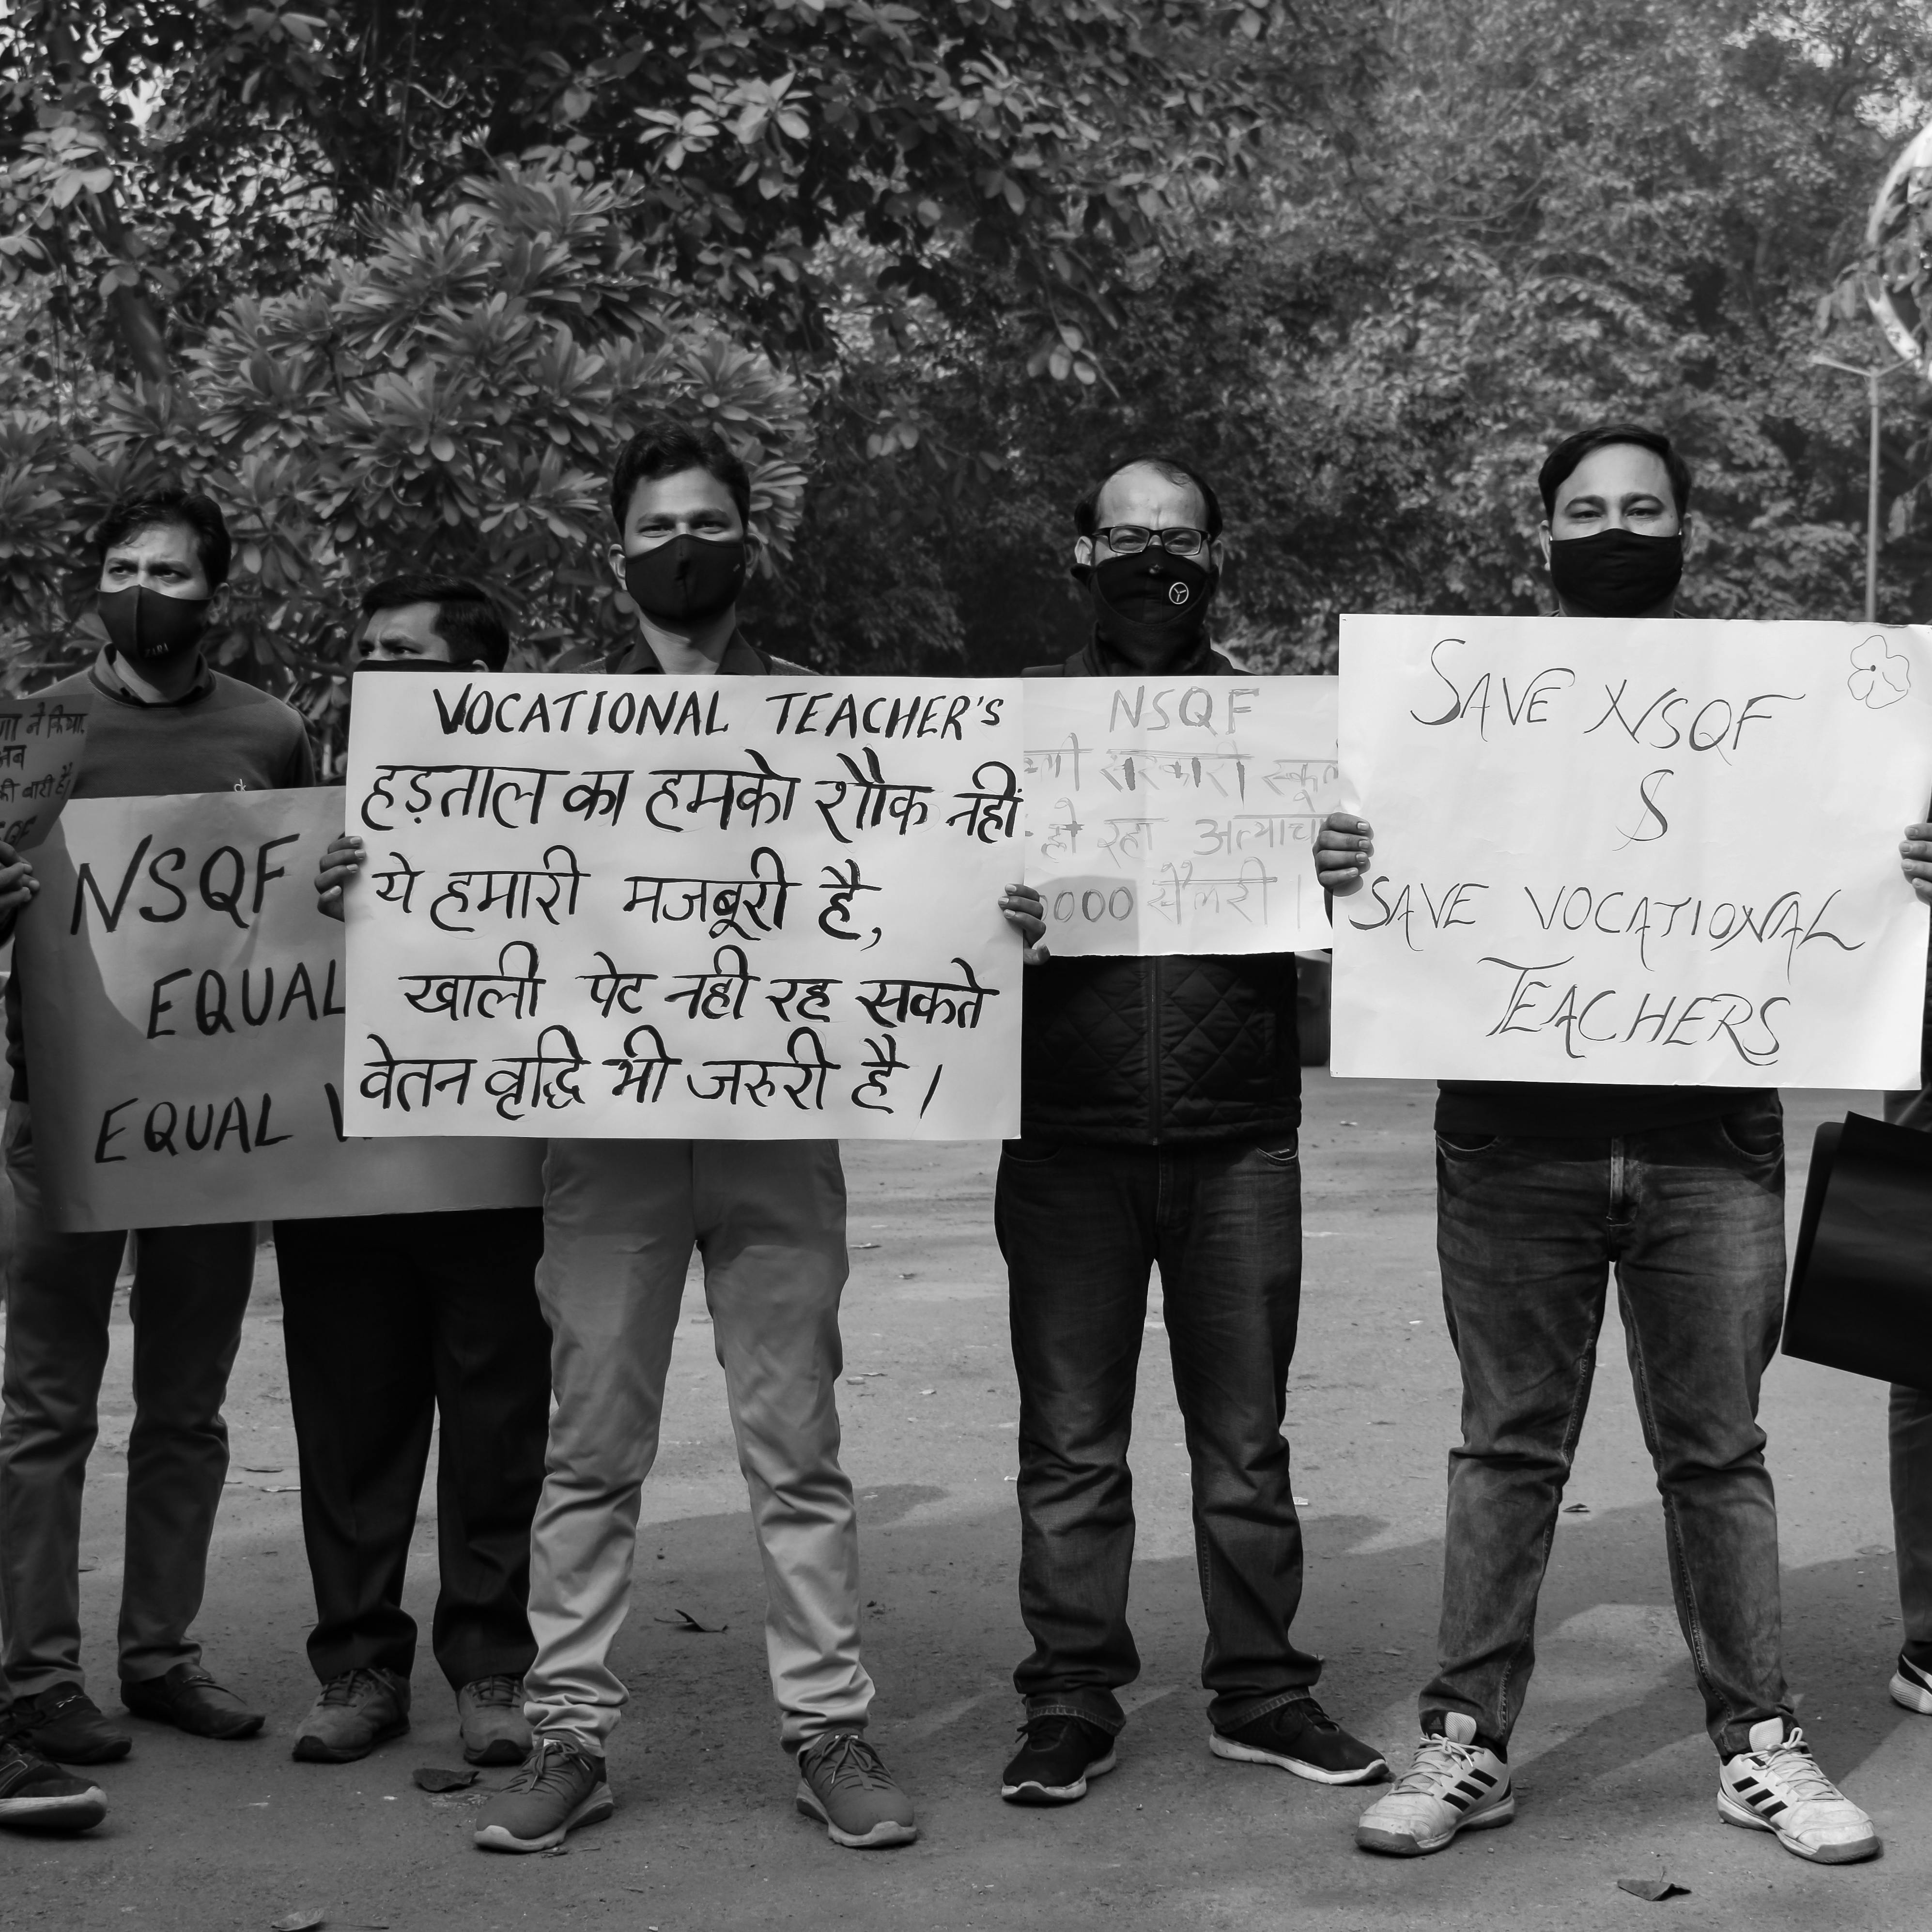 ने किया
अब
की बारी है
NSQF
EQUAL
EQUAL
VOCATIONAL TEACHER'S
हड़ताल का हमको शौक नहीं
ये हमारी मजबूरी है,
खाली पेट नही रह सकते
वेतन वृद्धि भी जरुरी है।
NSQF
सरकारी स्कूल
हो रहा
0000 सैलरी ।
SAVE NSQF
&
SAVE VOCATIONAL
TEACHERS